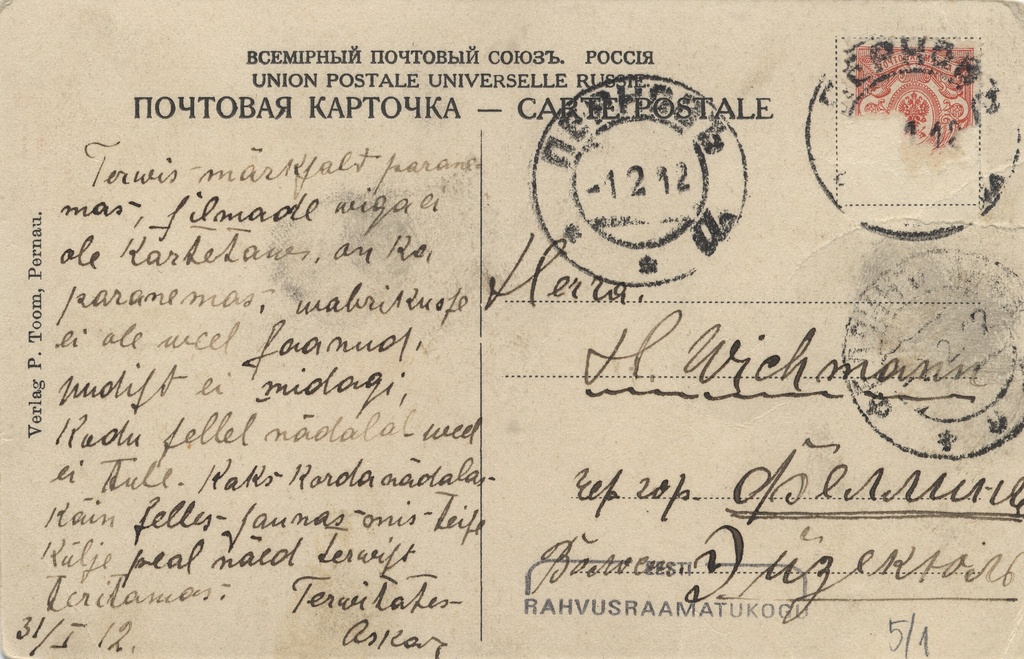 ВСЕМІРНЫЙ ПОЧТОВЫЙ СОЮЗЪ. РОССІЯ
UNION POSTALE UNIVERSELLE RUSSIE
ПОЧТОВАЯ КАРТОЧКА — CARTE POSTALE
Verlag P. Toom, Pernau.
Terwis märkſalt parane-
mas, ſilmade wiga ei
ole kartetaws, on ka
paranemas, wabrikusſe
ei ole weel ſaanud,
pudiſt ei midagi,
Kodu ſellel nädalal weel
ei tule. Kaks korda nädalas
käin ſelles ſaunas mis teiſe
külje peal näed terwiſt
teritamas.
Terwitates
Askar
31/I 12.
ПЕРНОВЪ
-1 2 12
а
Herra.
H. Wichmann
чер гор. Феллинъ
Эйзекюль
EESTI
RAHVUSRAAMATUKOGU
5/1